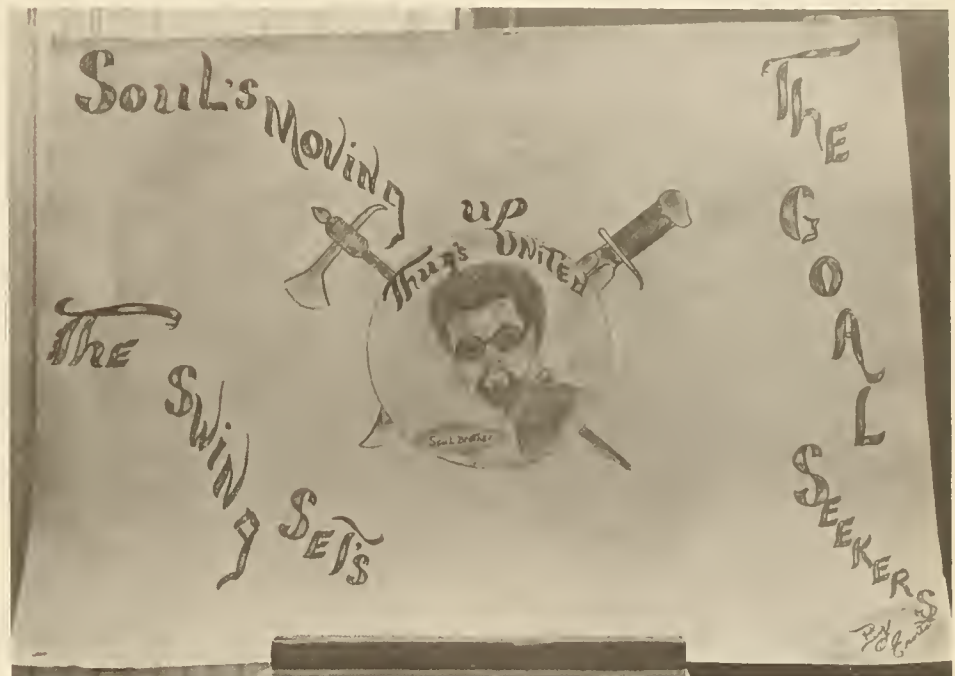 Soul's
Moving
up
Thug's United
Soul Brother
The
Swing
Set's
The
Goal
Seekers
By